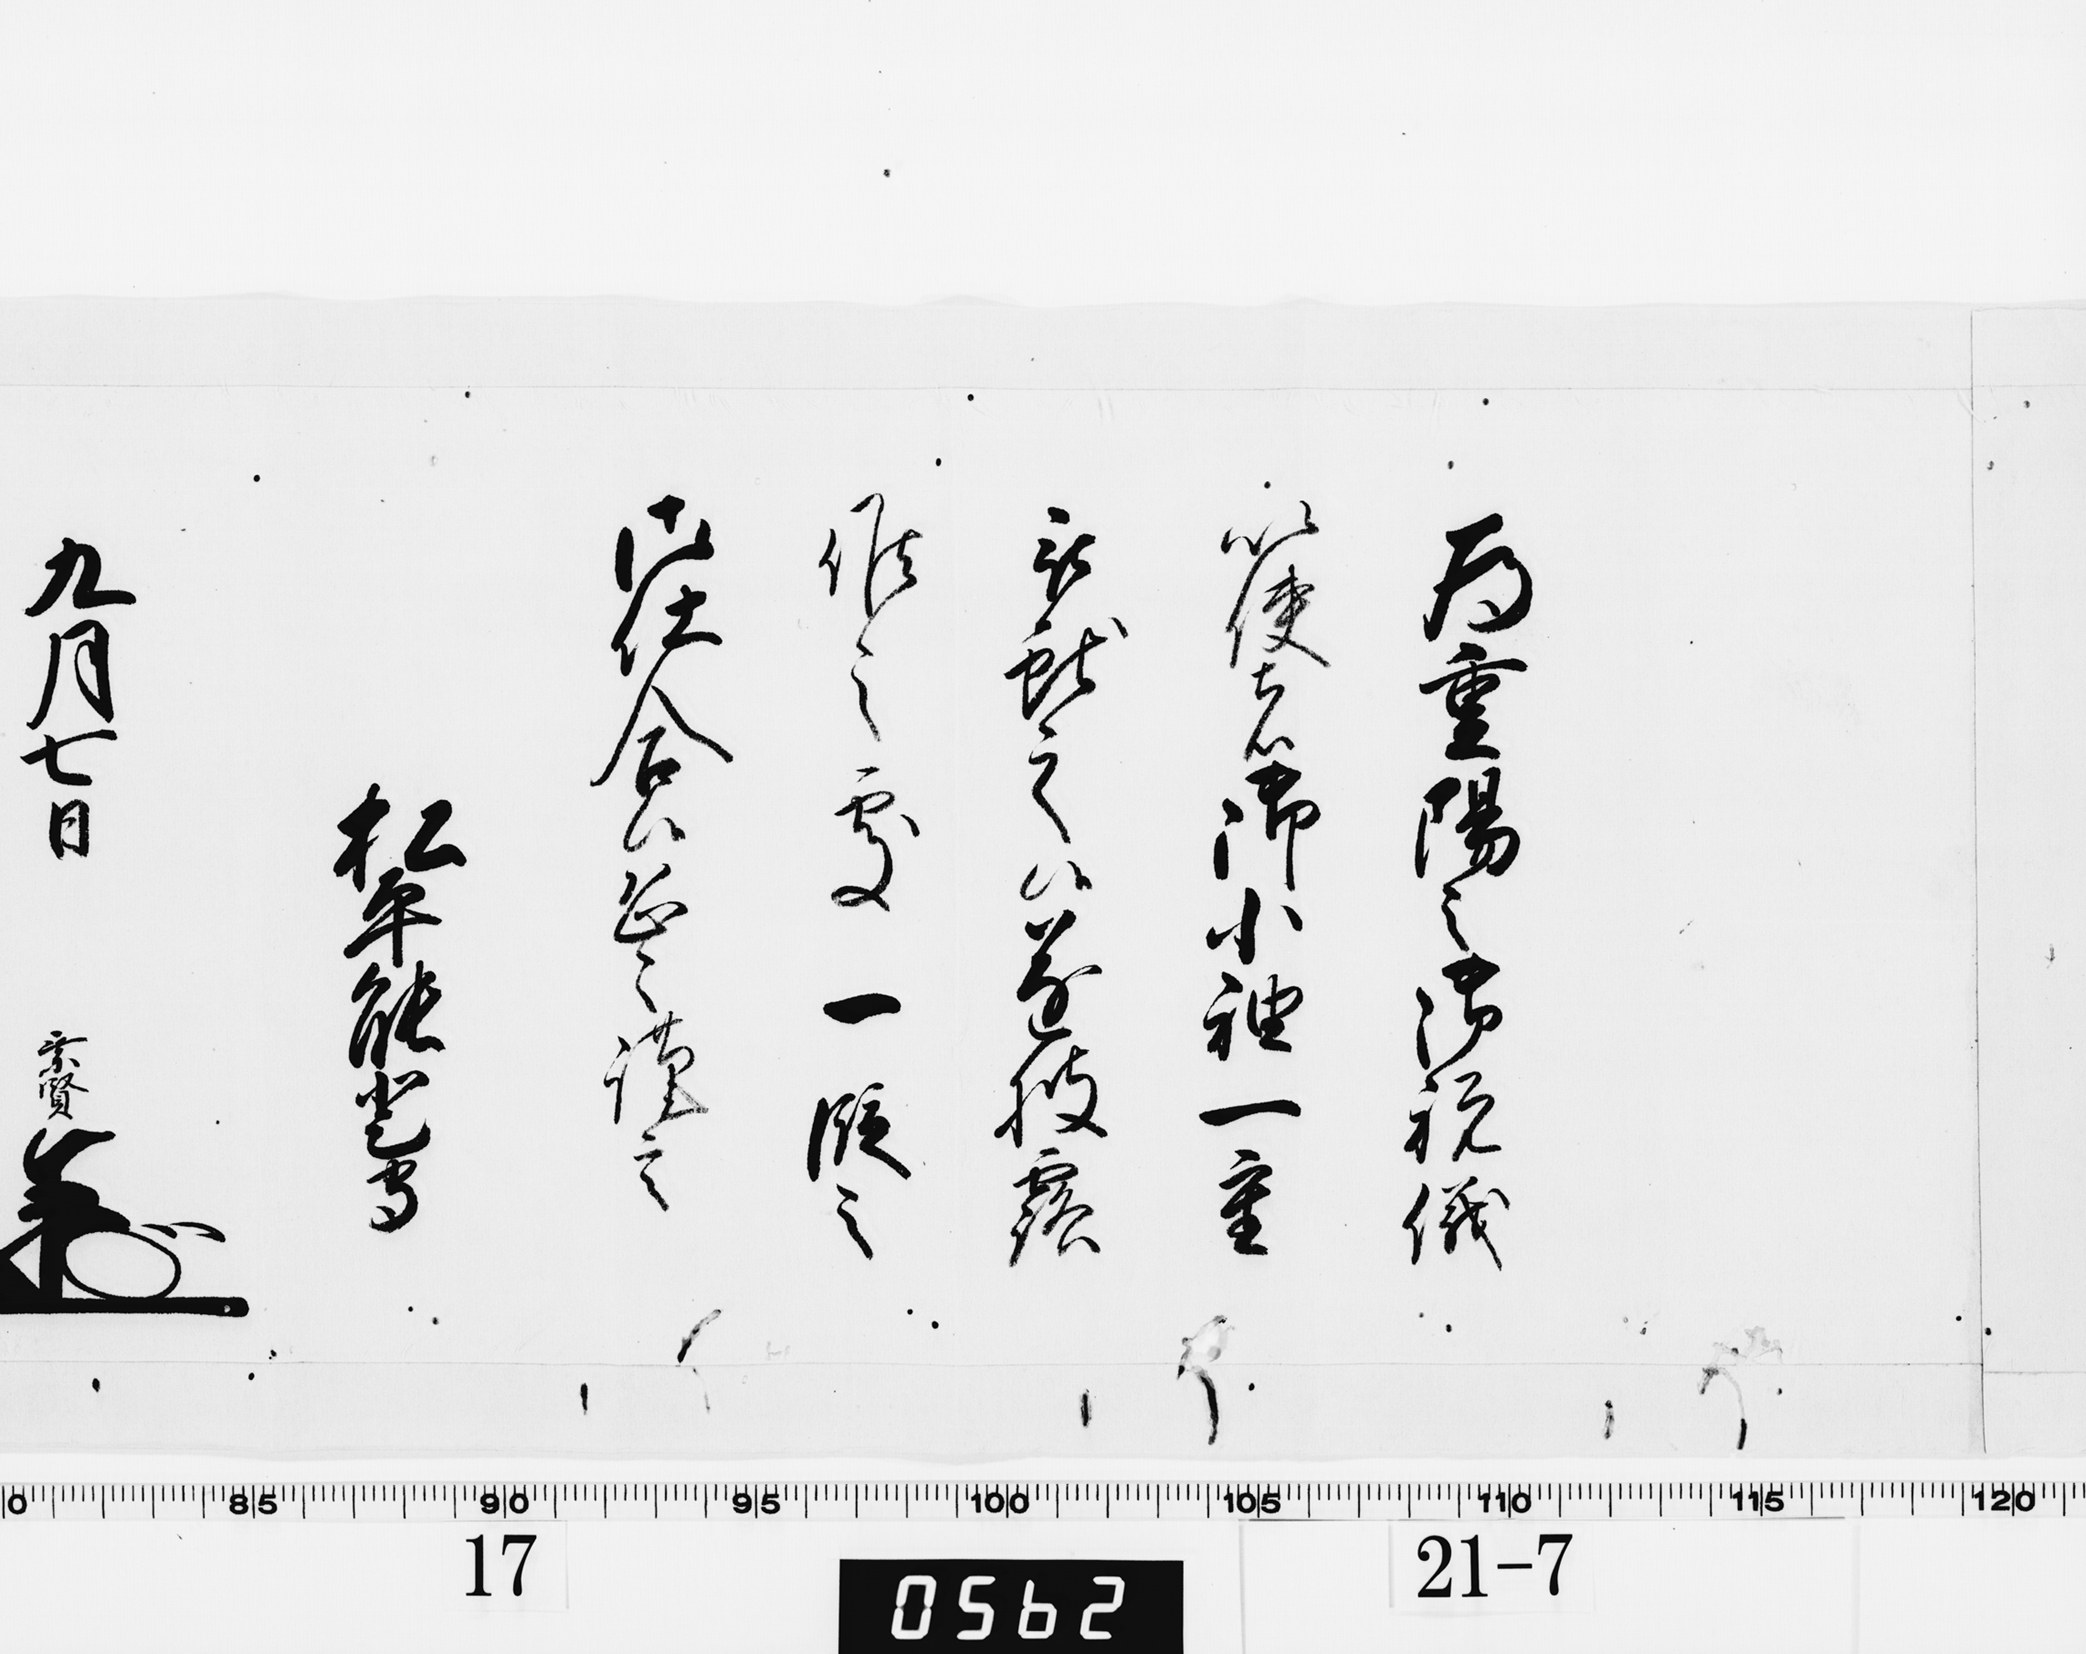 為重陽之御祝儀
以使者御小袖一重
被献之候遂披露
候之處一段之
御仕合候恐々謹言
松平能登守
九月七日
乗賢
0 85 90 95 100 105 110 115 120
17
0562
21-7